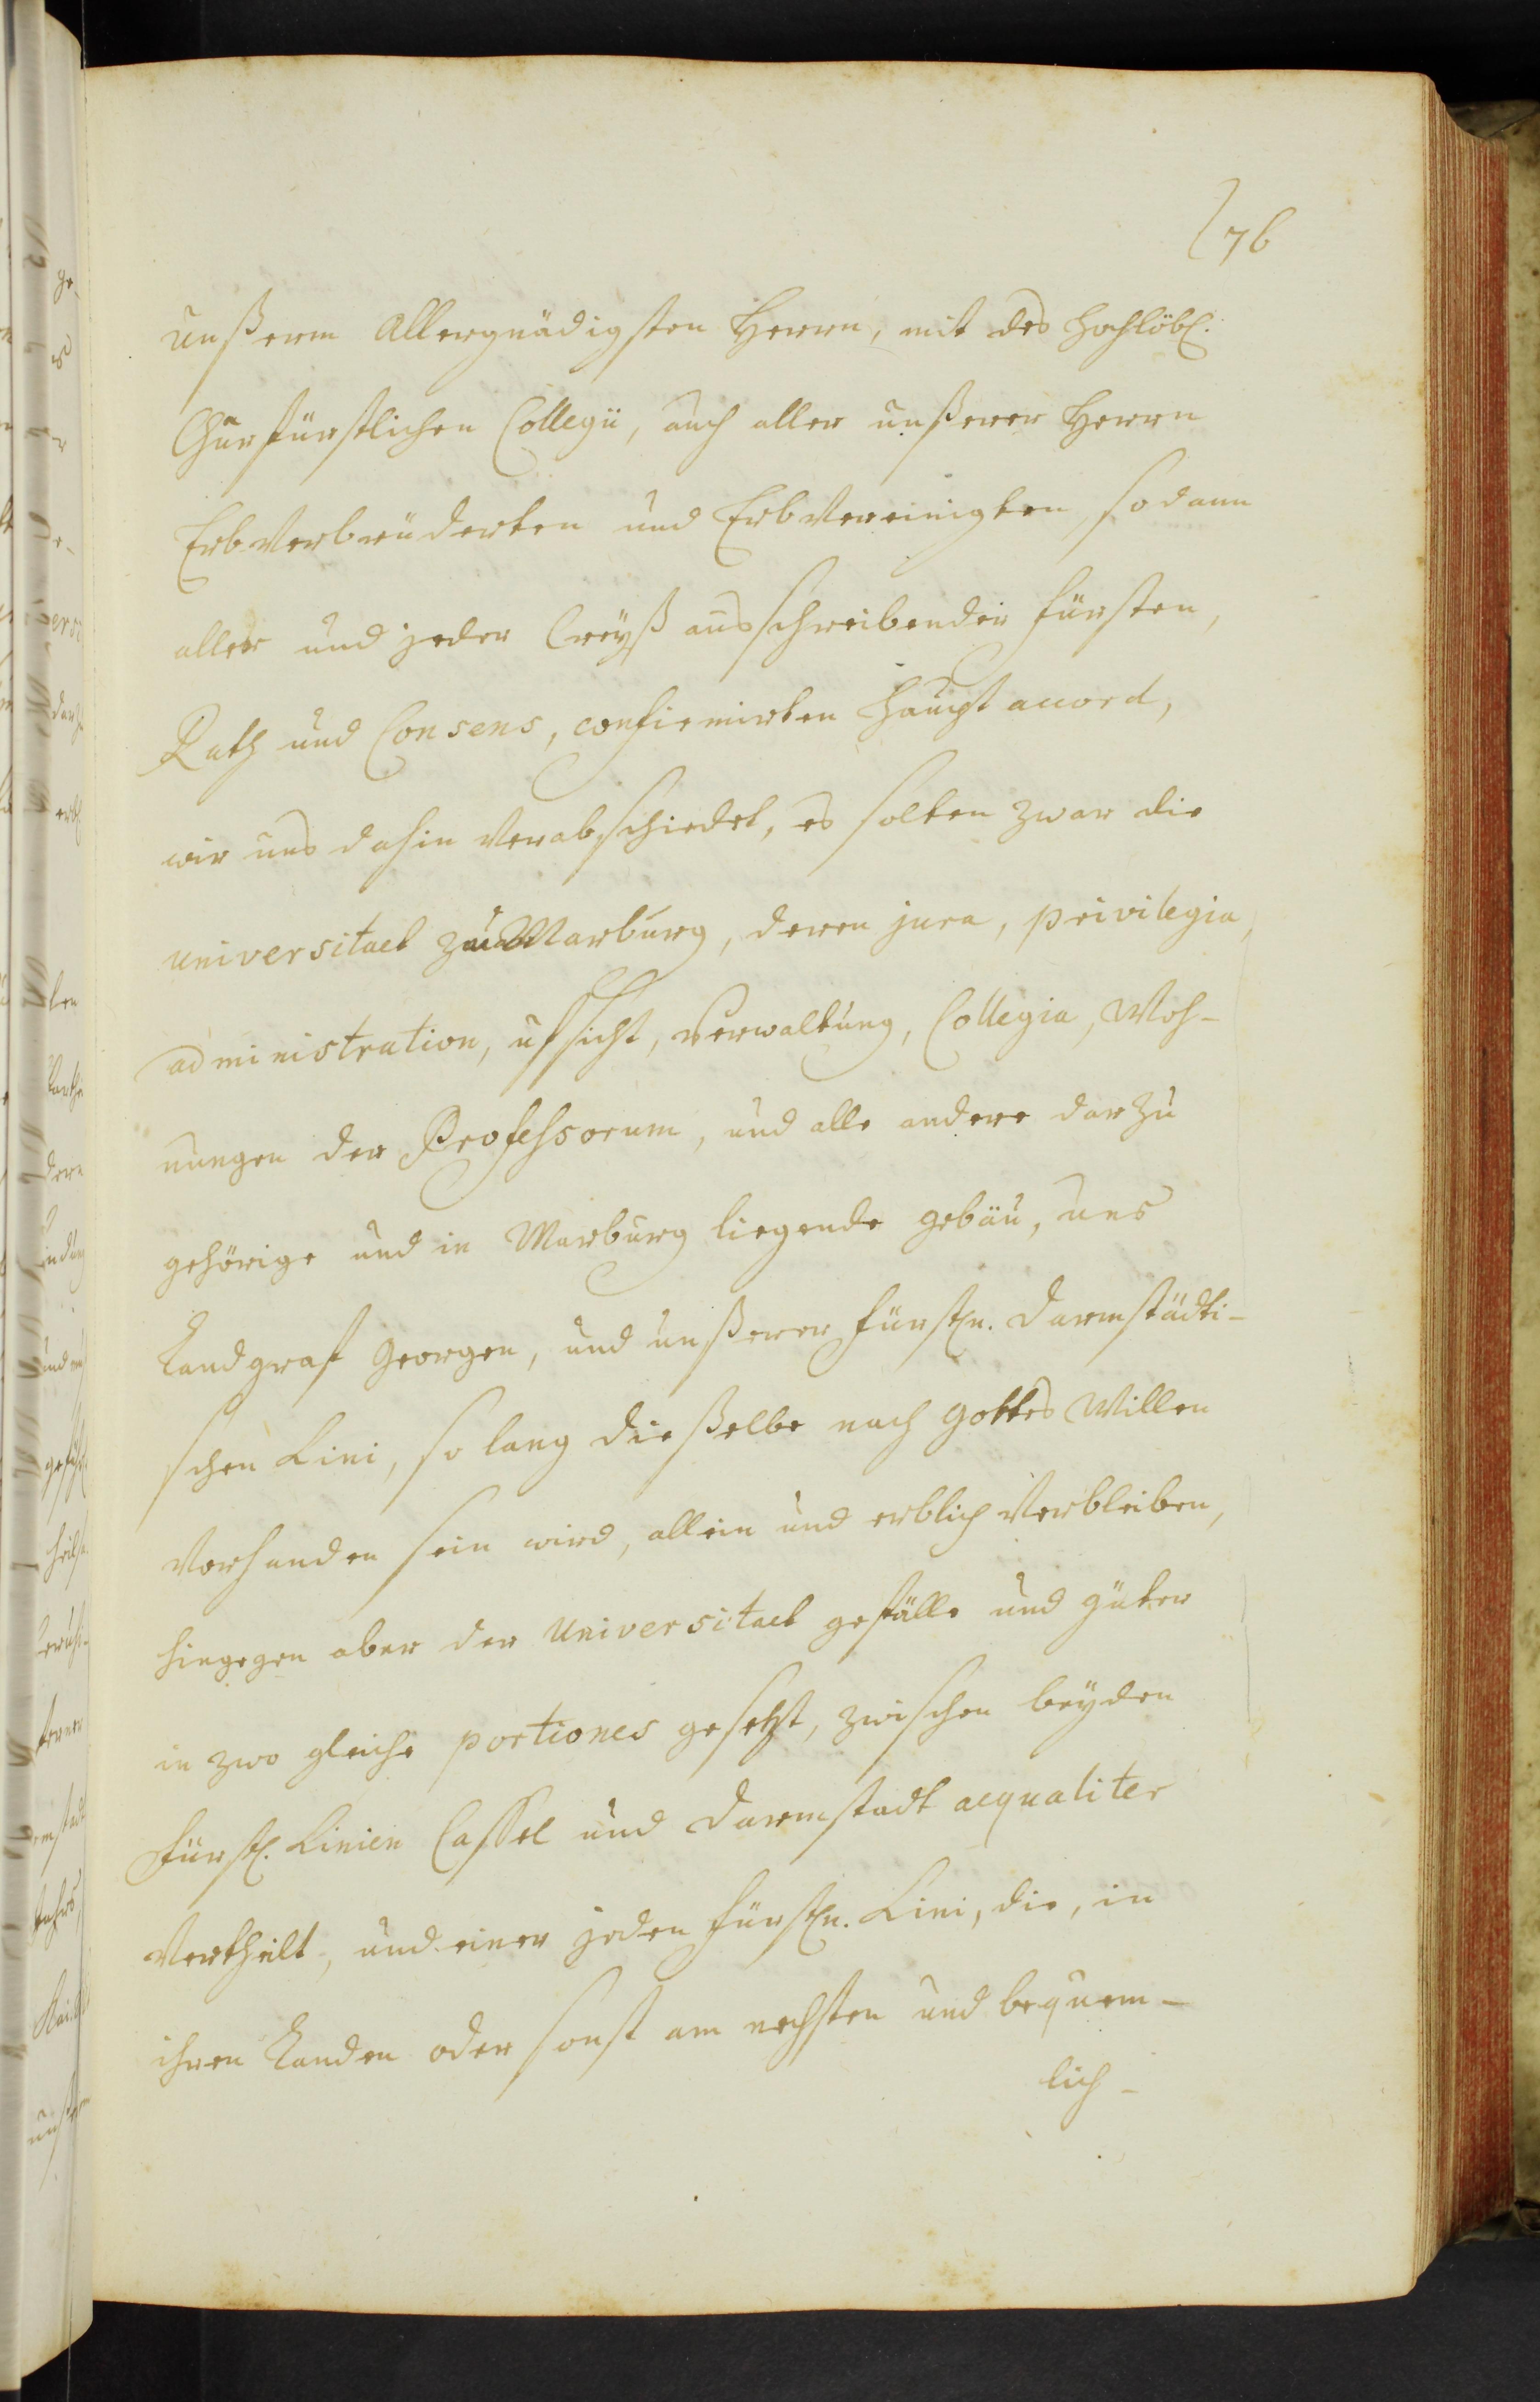 76
unßerm Allergnädigsten Herrn, mit des hochlöbl.
Churfürstlichen Collegii, auch aller unßerer Herrn
Erbverbrüderten und Erbvereinigten, sodann
aller und jeder Creyß ausschreibender fürsten,
Rath und Consens, confirmirten Haupt accord,
wir uns dahin verabschiedet, es solten zwar die
universitaet zu Marburg, deren jura, privilegia,
administration, uffsicht, verwaltung, Collegia, Woh-
nungen der Professorum, und alle andere darzu
gehörige und in Marburg liegende gebäu, uns
Landgraf Georgen, und unßerer fürstln. Darmstädti-
schen Lini, so lang dießelbe nach Gottes Willen
vorhanden sein wird, allein und erblich verbleiben,
hingegen aber der Universitaet gefälle und güter
in zwo gleiche portiones gesetzt, zwischen beyden
fürstl. Linien Cassel und Darmstadt aequaliter
vertheilt, und einer jeden fürstln. Lini, die, in
ihren Landen oder sonst am nechsten und bequem-
lich-